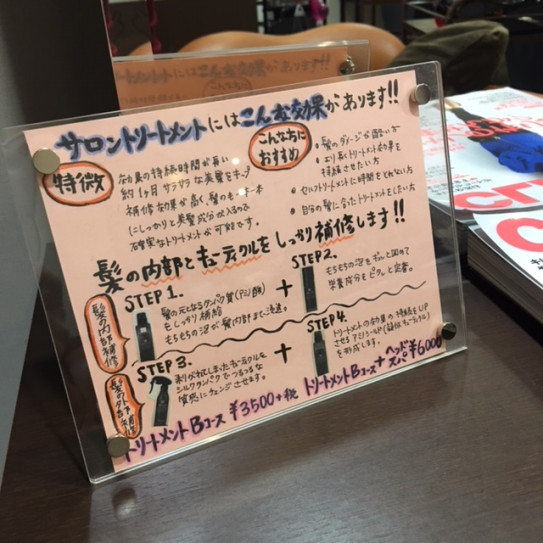 サロントリートメントにはこんな効果があります!!
特徴
効果の持続時間が長い
約1ヶ月サラサラな美髪をキープ
補修効果が高く、髪の毛一本一本
にしっかりと美髪成分が入るので
確実なトリートメントが可能です。
こんな方に
おすすめ
• 髪のダメージが酷い方
• より高いトリートメント効果を
持続させたい方
• セルフトリートメントに時間をとれない方
• 自分の髪に合ったトリートメントをしたい方
髪の内部とキューティクルをしっかり補修します!!
髪の内部補修
STEP 1.
髪の元となるタンパク質(アミノ酸)
をしっかり補給
もちもちの泡が髪内部まで浸透。
+
STEP 2.
もちもちの泡をギュッと固めて
栄養成分をピタッと定着。
髪の外部補修
STEP 3.
剥がれてしまったキューティクルを
シルクタンパクでつるつるな
質感にチェンジさせます。
+
STEP 4.
トリートメントの効果の持続をUP
させるアミノシールド(疑似キューティクル)
を形成します。
トリートメントBコース ¥3500+税
トリートメントBコース+ヘッドスパ ¥6000
CL